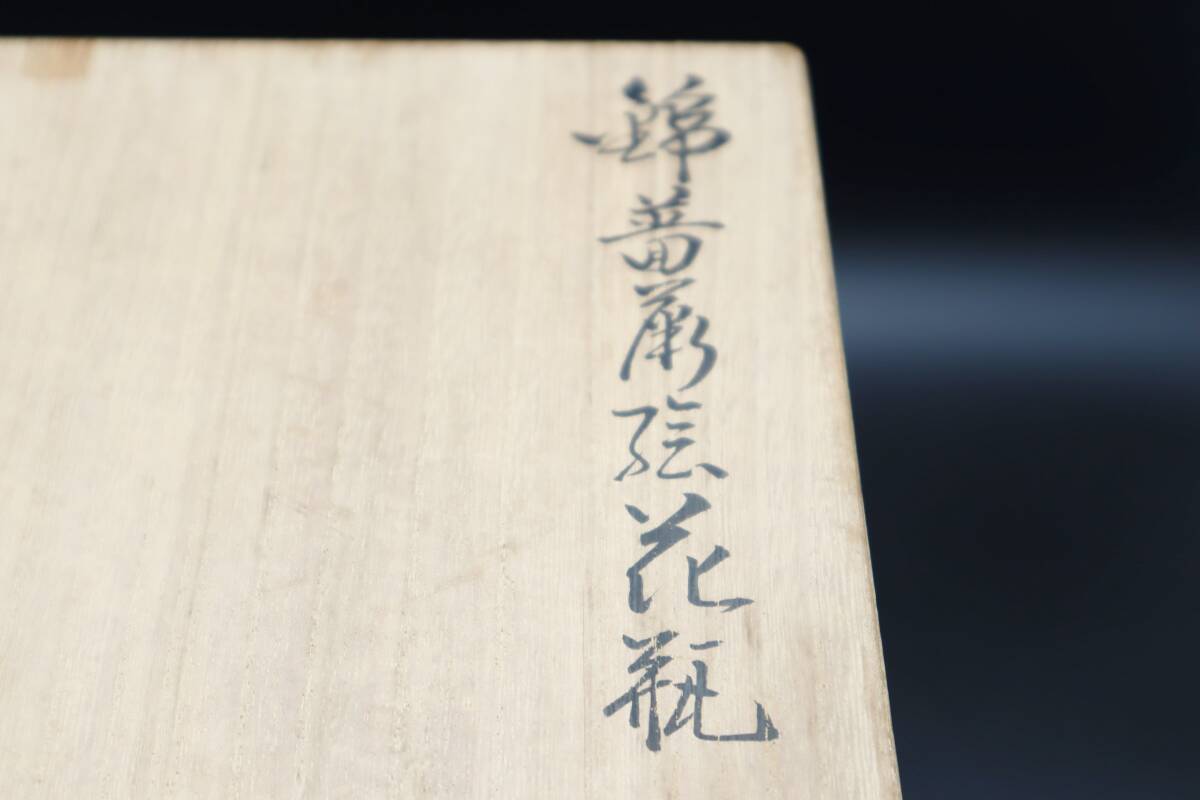 錦薔薇絵花瓶